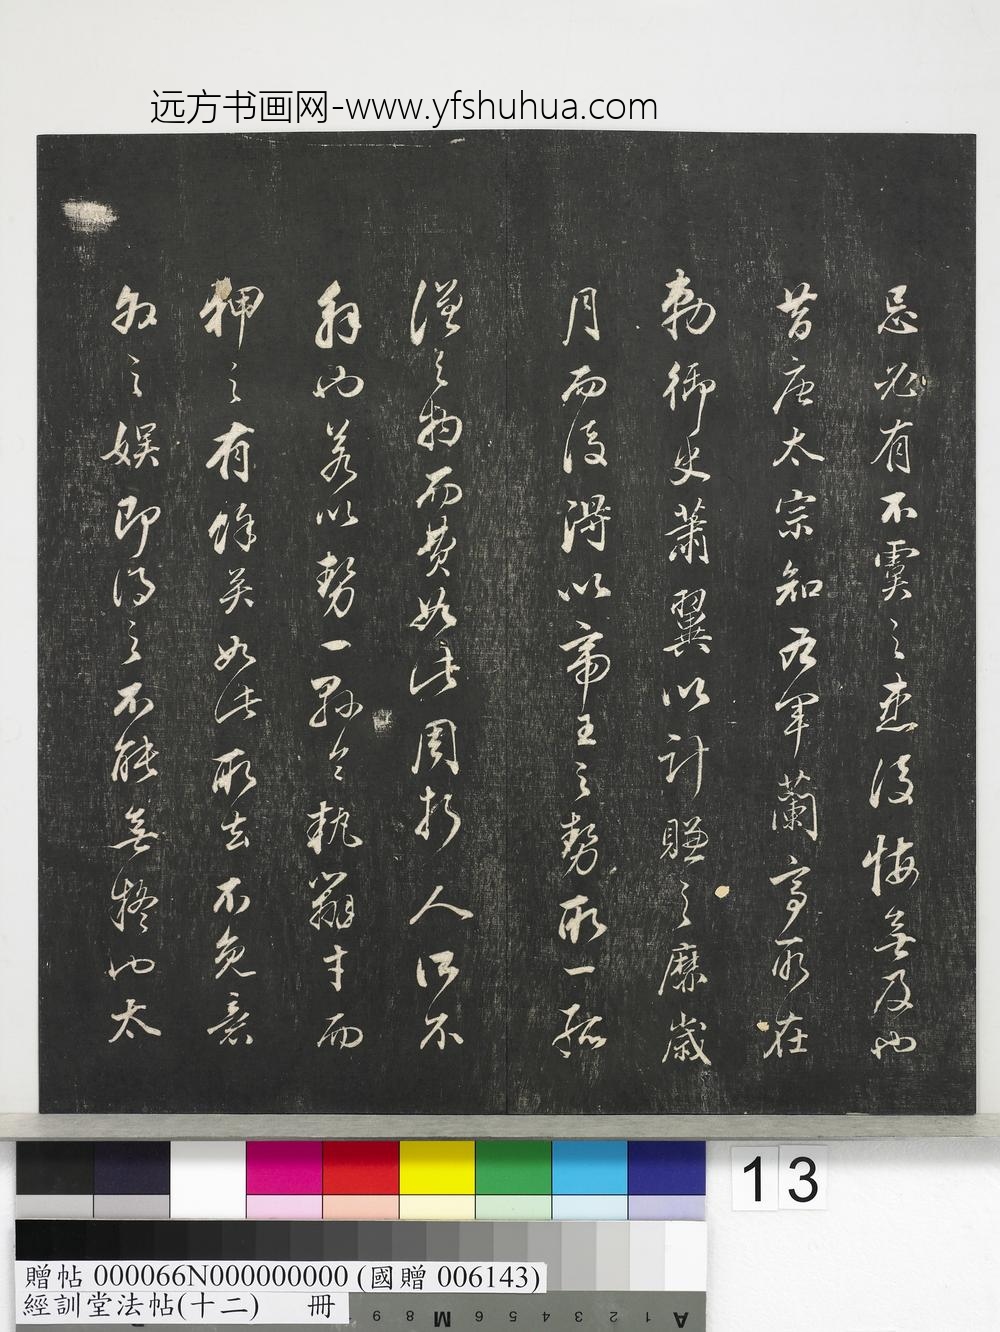 远方书画网-www.yfshuhua.com
忌必有不虞之患後悔無及也
昔唐太宗知右軍蘭亭所在
勅御史蕭翼以計賺之靡歲
月而後得以帝王之勢取一
之物而費如此周折人何不
也若以勢一縣令執才而
之有餘矣如此取去不免
之娱即得之不能無也太
13
贈帖 000066N000000000 (國贈 006143)
經訓堂法帖(十二) 冊
9 8 M 6 5 4 3 2 1 A